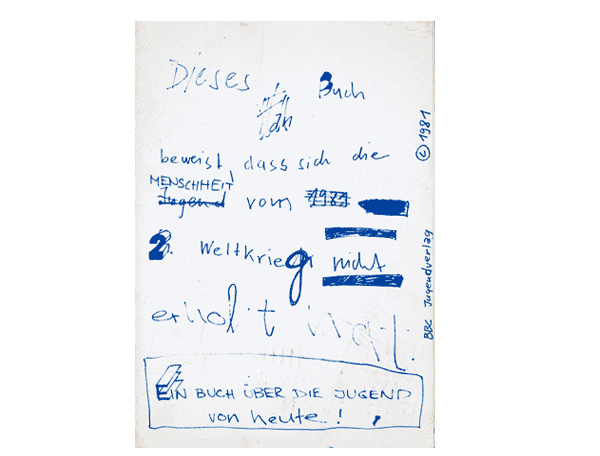 Dieses Buch
beweist, dass sich die
MENSCHHEIT
Jugend vom 1981
2. Weltkrieg nicht
erholt hat.
EIN BUCH ÜBER DIE JUGEND
von heute!
BBC Jugendverlag © 1981